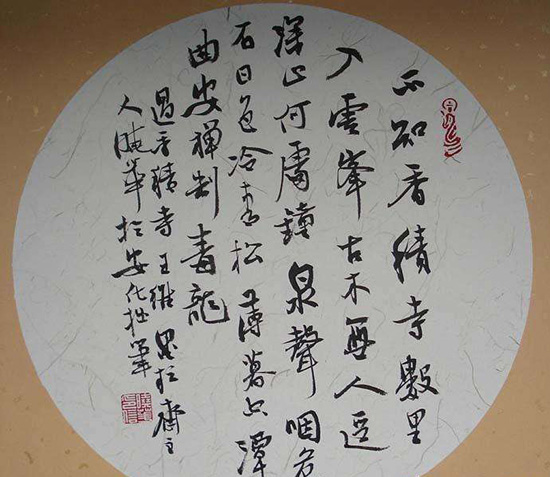 不知香積寺數里
入雲峯古木無人逕
深山何處鐘泉聲咽危
石日色冷青松薄暮空潭
曲安禪制毒龍
過香積寺王維齋主
人華於安化拙筆